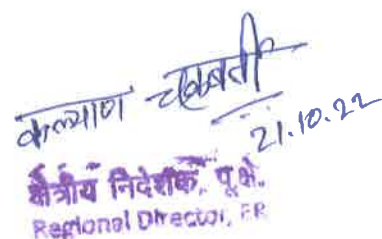 कल्याण चक्रबर्ती
21.10.22
क्षेत्रीय निदेशक, पू.क्षे.
Regional Director, ER